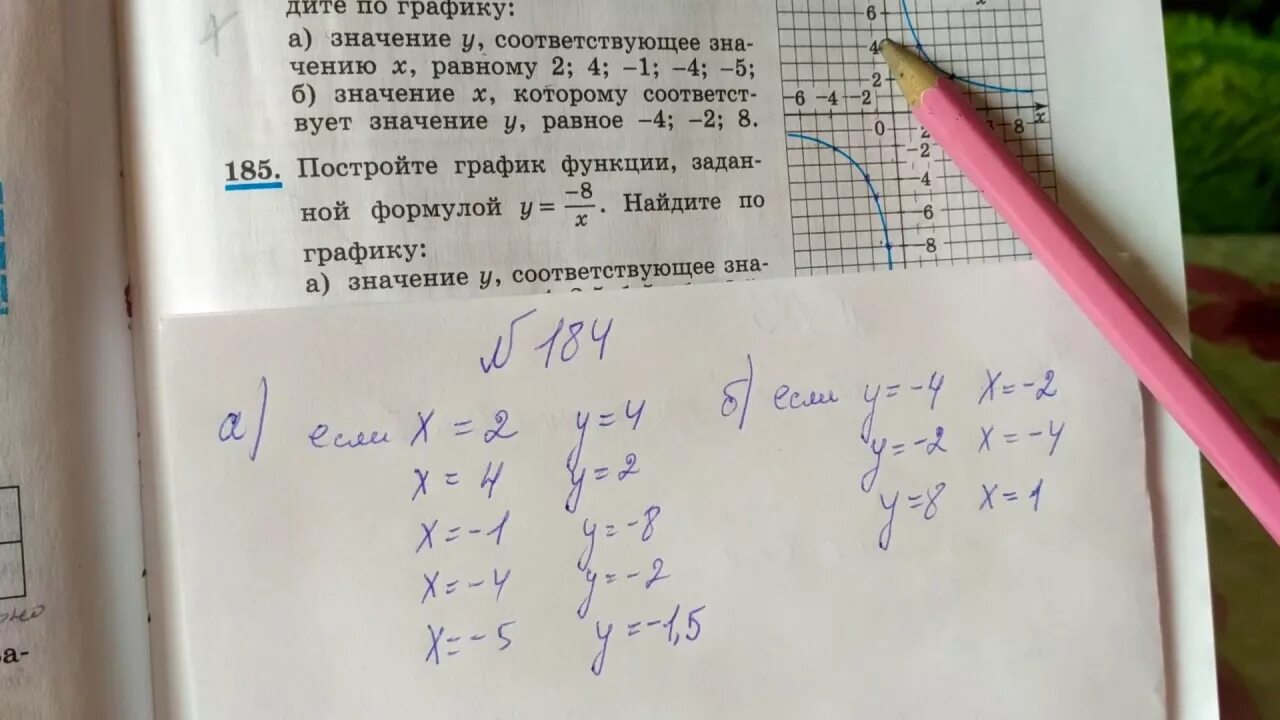 дите по графику:
а) значение y, соответствующее зна-
чению x, равному 2; 4; −1; −4; −5;
б) значение x, которому соответст-
вует значение y, равное −4; −2; 8.
185. Постройте график функции, задан-
ной формулой y = −8/x. Найдите по
графику:
а) значение y, соответствующее зна-
6
4
2
−6 −4 −2
0
2
8
x
−2
−4
−6
−8
N 184
а) если x = 2 y = 4
x = 4 y = 2
x = −1 y = −8
x = −4 y = −2
x = −5 y = −1,5
б) если y = −4 x = −2
y = −2 x = −4
y = 8 x = 1
а-